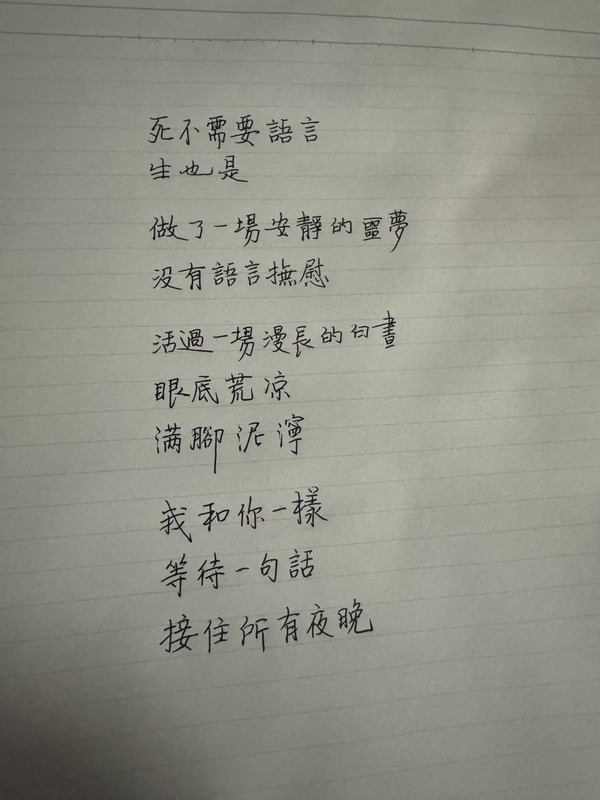 死不需要語言
生也是
做了一場安靜的噩夢
没有語言撫慰
活過一場漫長的白晝
眼底荒凉
满腳泥濘
我和你一樣
等待一句話
接住所有夜晚